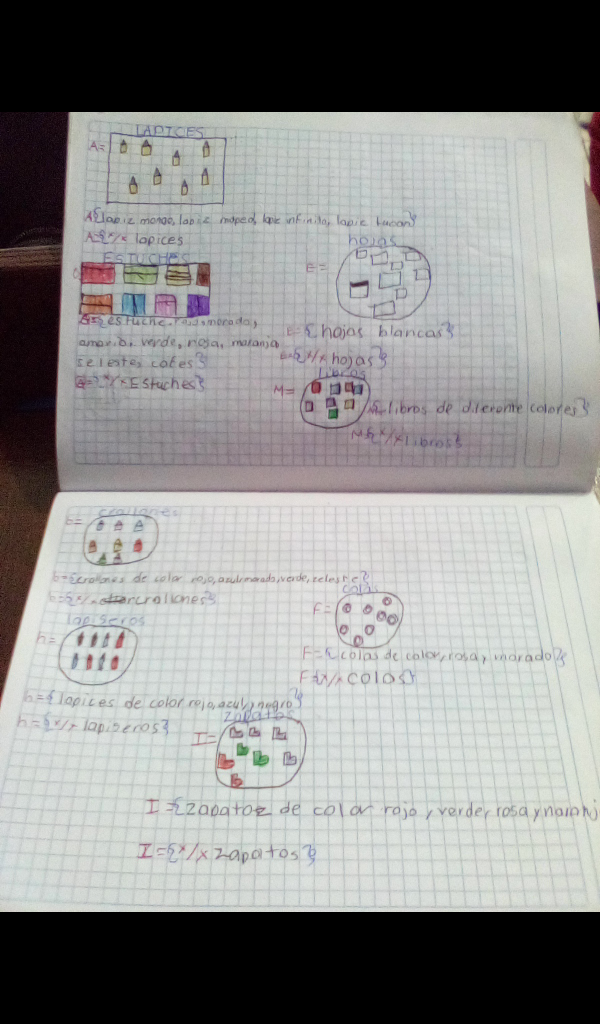 LAPICES
A=
A={lapiz mongo, lapiz maped, lapiz infinito, lapiz
A={x/x lapices
ESTUCHES
estuche, rojo, morado,
amario, verde, rioja, maranja
selestes, cafes}
={x/x Estuches}
hojas
E=
E={hojas blancas}
E={x/x hojas}
libros
M=
M={libros de diferente colores}
M={x/x libros}
crallones
b=
b={crallones de color rojo, azul, morado, verde, celeste}
b={x/x crallones}
colas
F=
F={colas de color, rosa, morado}
F={x/x colas}
lapiseros
h=
h={lapices de color rojo, azul, negro}
h={x/x lapiseros}
zapatos
I=
I={zapatoz de color rojo, verde, rosa, y naranj
I={x/x zapatos}